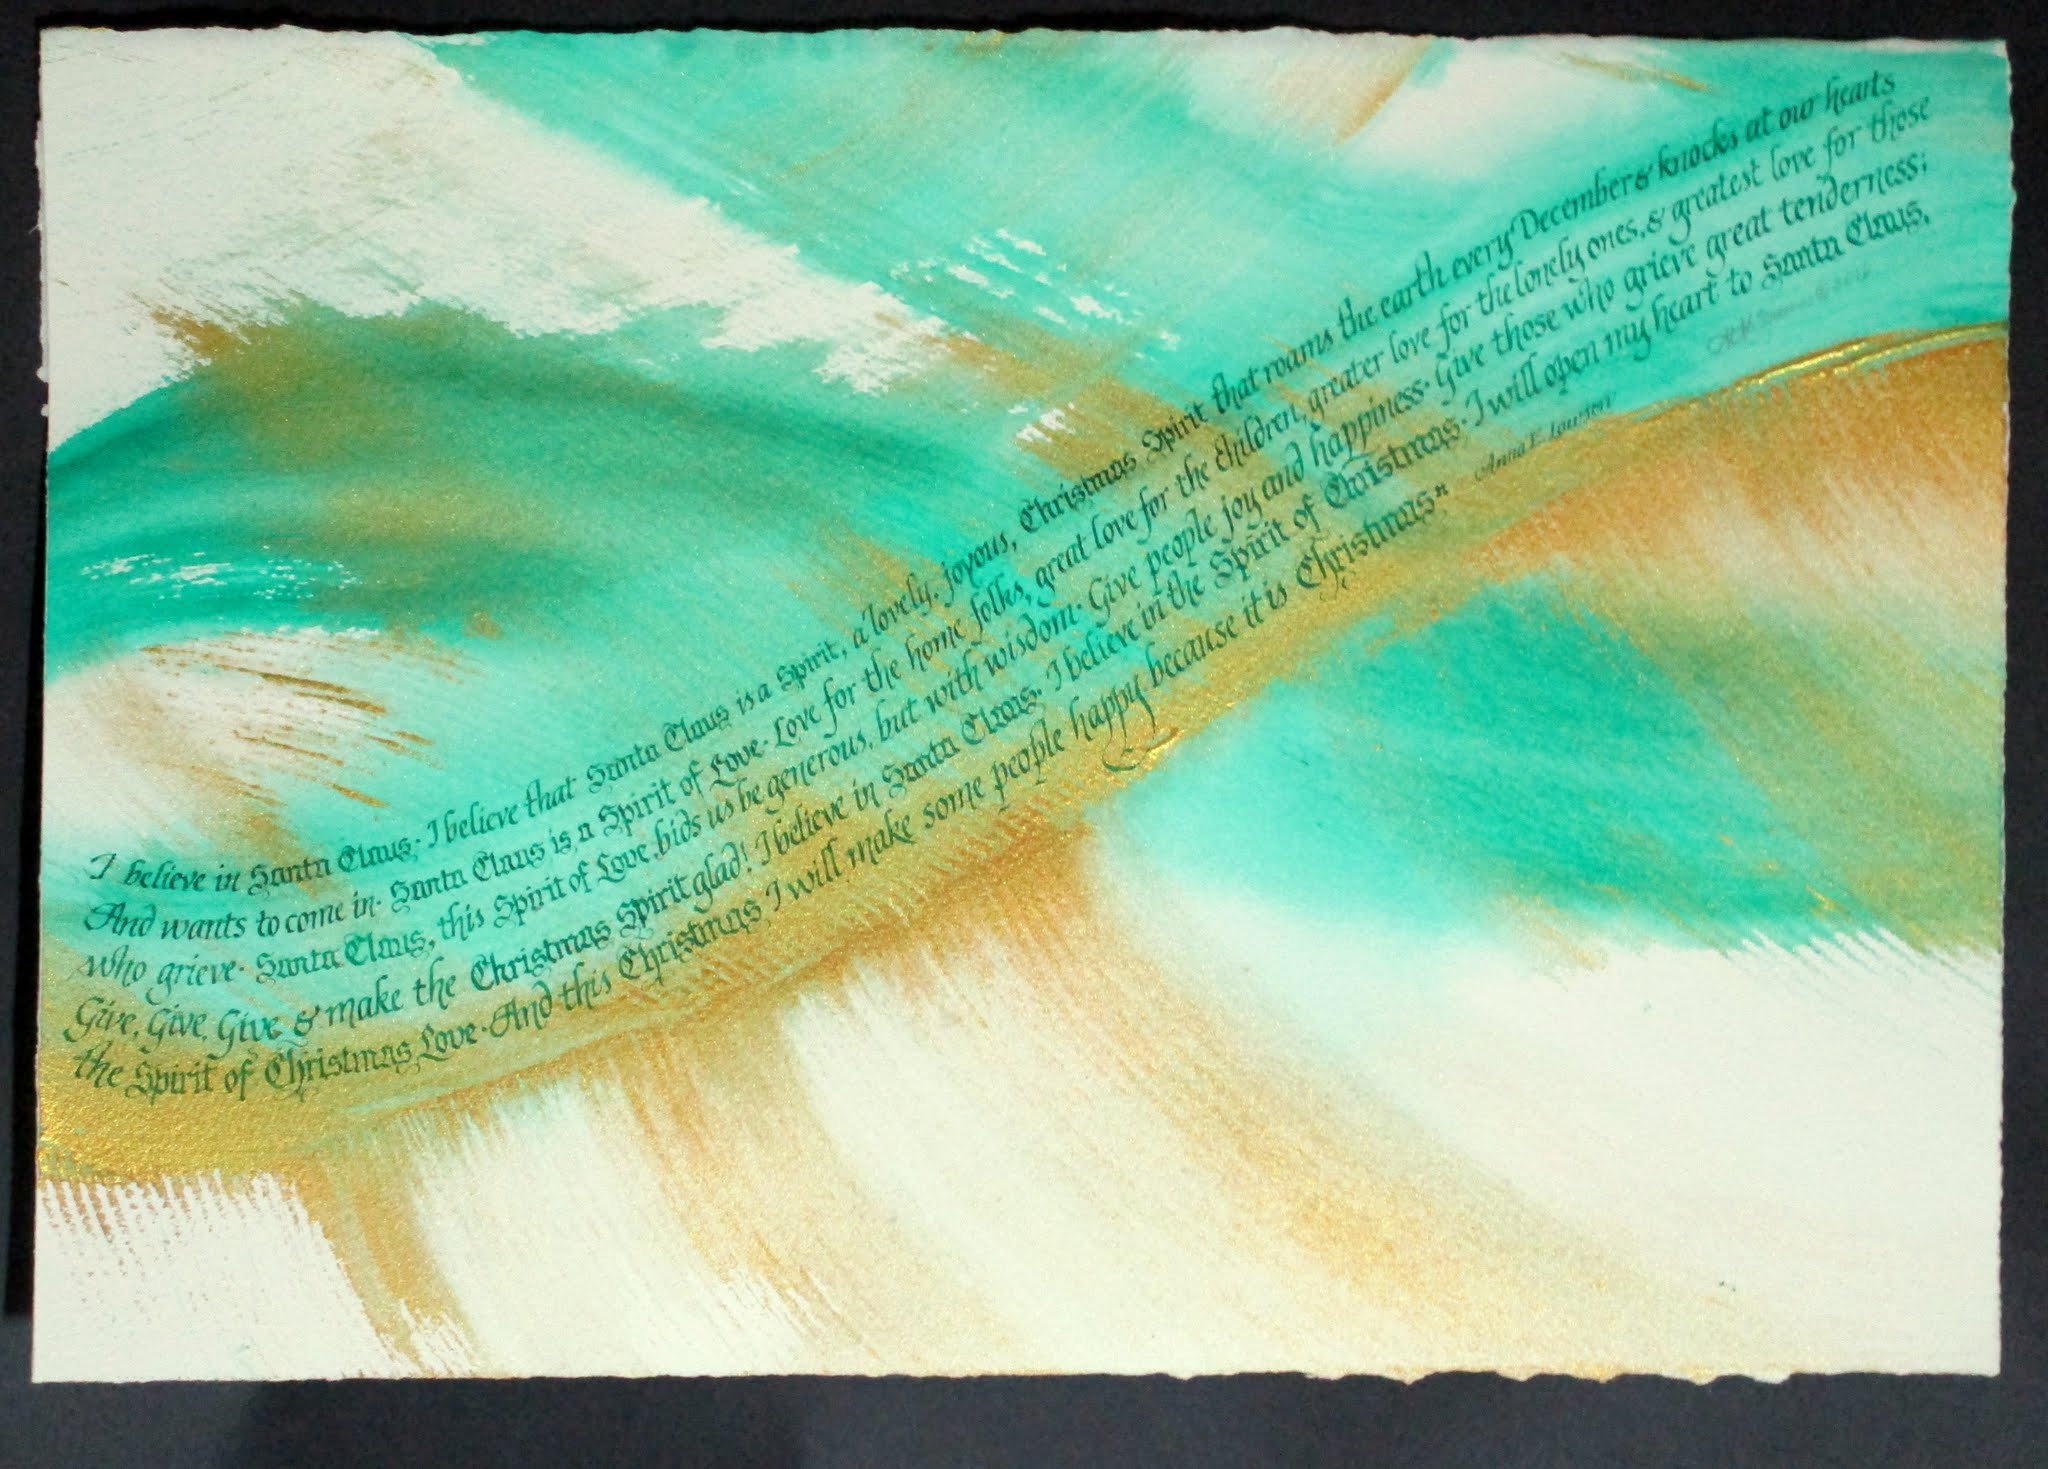 I believe in Santa Claus. I believe that Santa Claus is a Spirit, a lovely, joyous, Christmas Spirit that roams the earth every December & knocks at our hearts
And wants to come in. Santa Claus is a Spirit of Love. Love for the home folks, great love for the Children, greater love for the lonely ones, & greatest love for those
who grieve. Santa Claus, this Spirit of Love, bids us be generous, but with wisdom. Give people joy and happiness. Give those who grieve great tenderness;
Give, Give, Give & make the Christmas Spirit glad! I believe in Santa Claus. I believe in the Spirit of Christmas. I will open my heart to Santa Claus,
the Spirit of Christmas Love. And this Christmas I will make some people happy because it is Christmas."
Anna E. Lawson